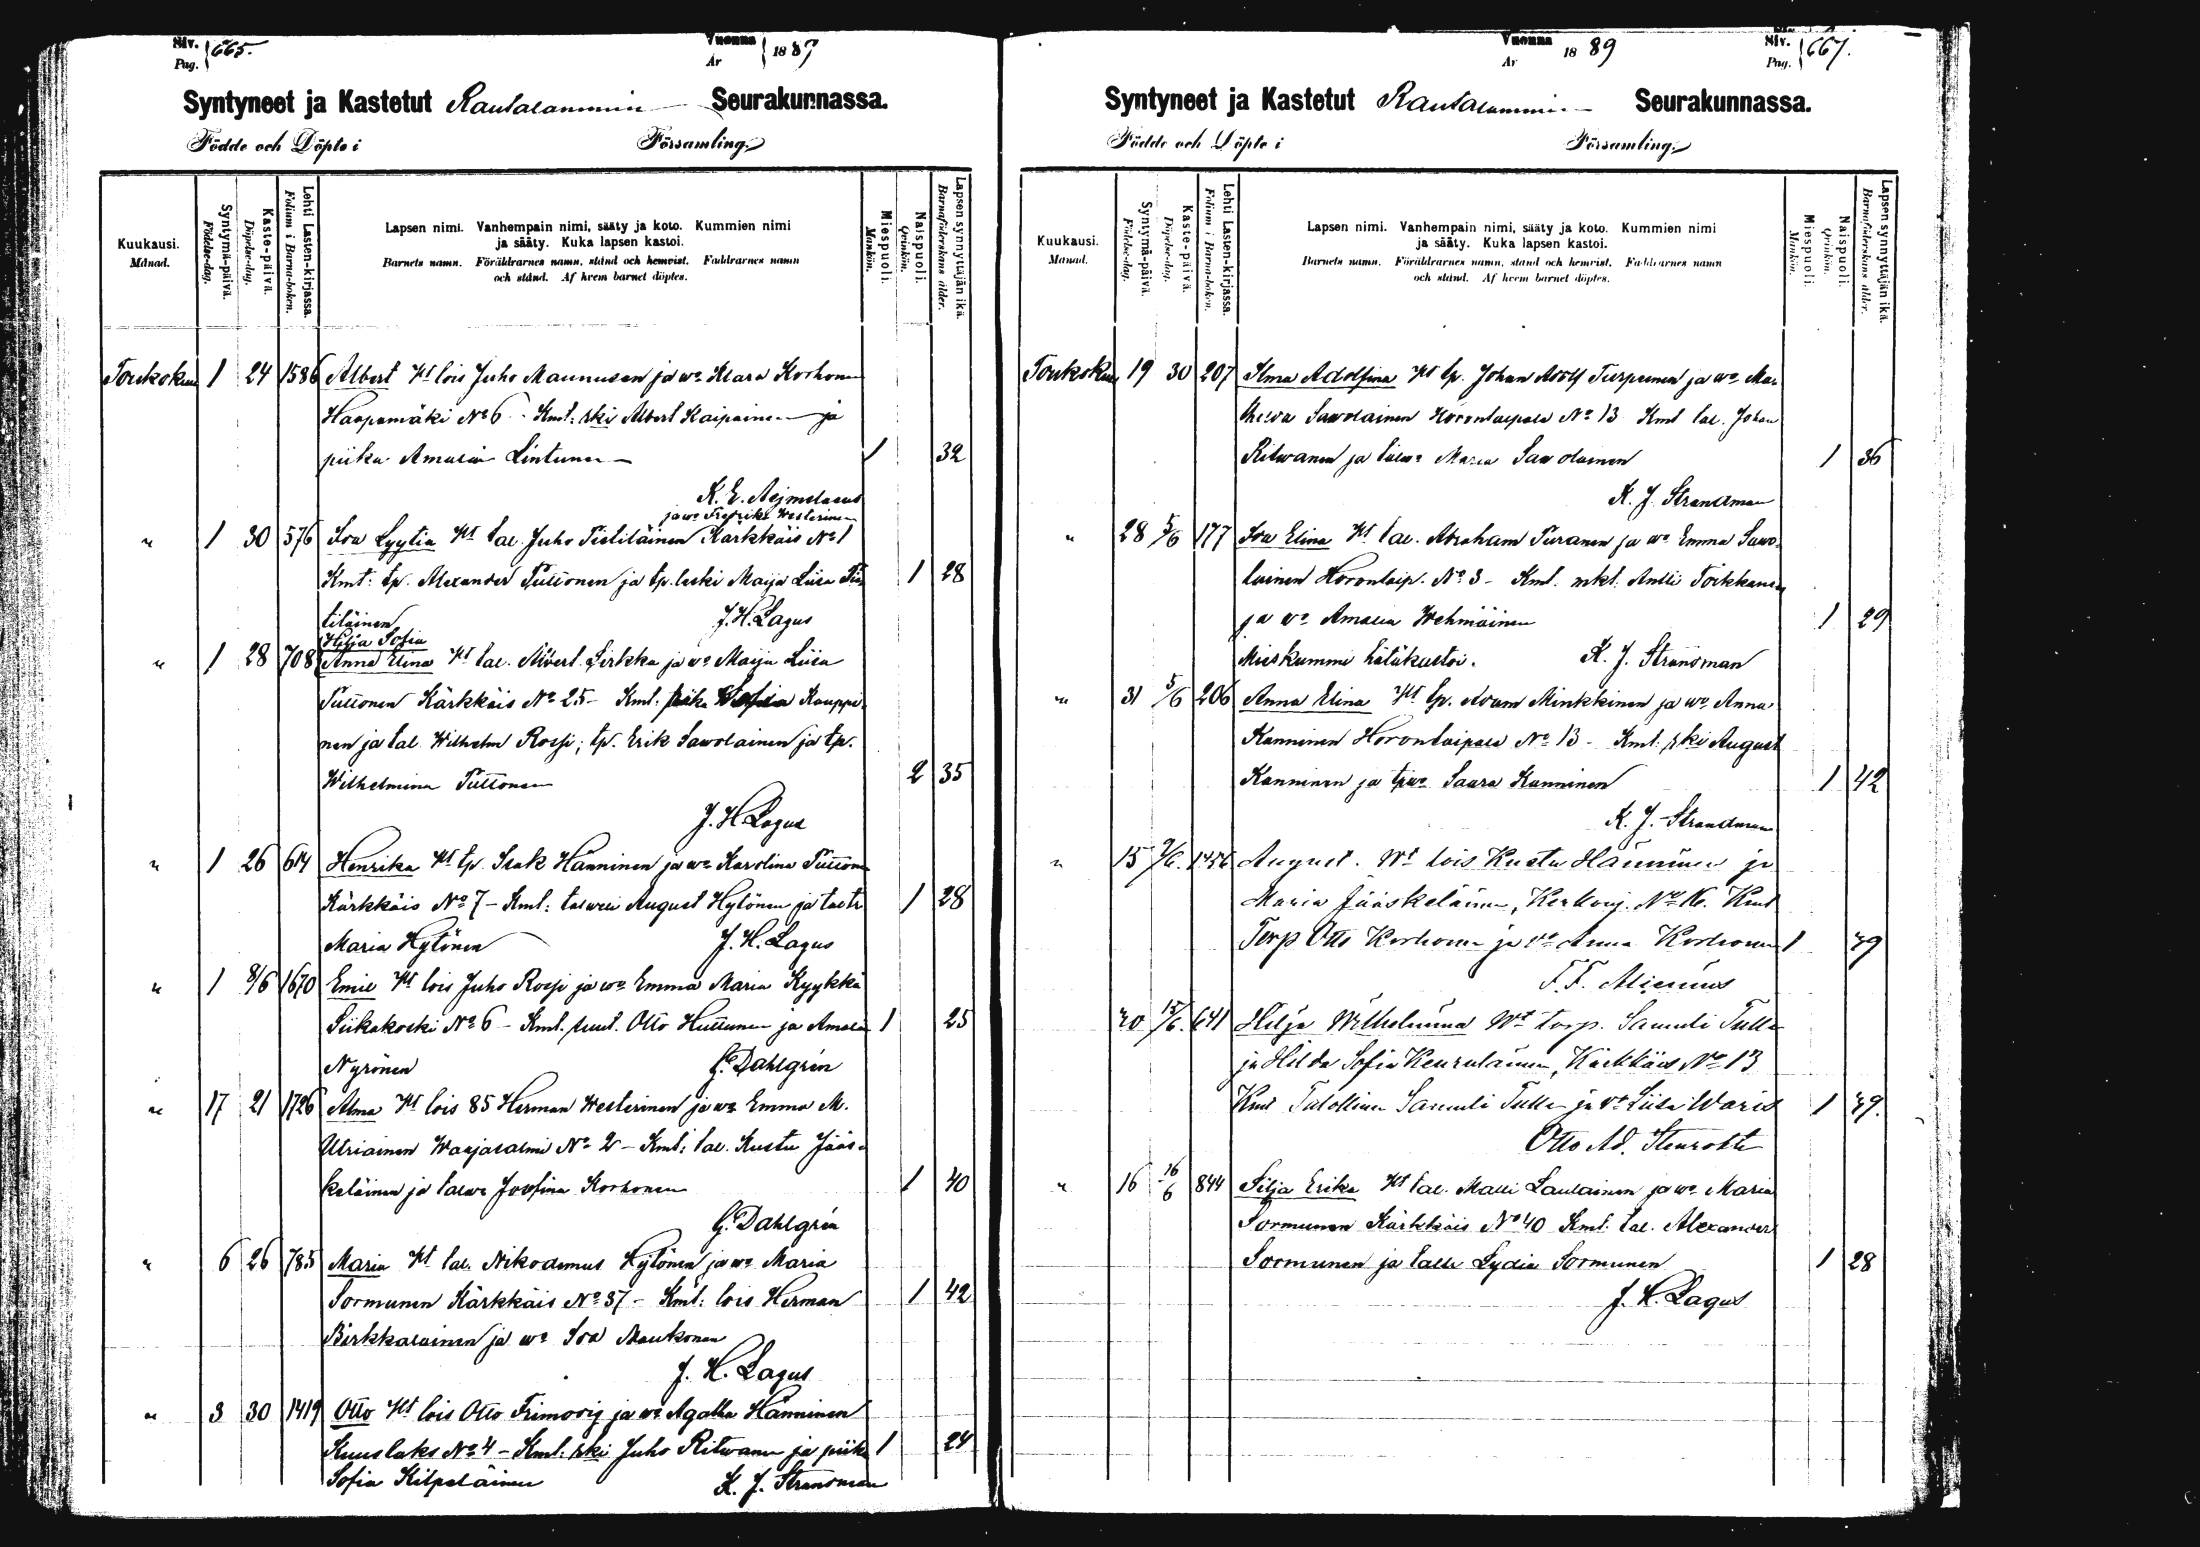 Siv.
Pag. 665.
Vuonna
År 1887
Syntyneet ja Kastetut Rautalammin Seurakunnassa.
Födde och Döpte i Församling.
Kuukausi.
Månad.
Syntymä-päivä.
Födelse-dag.
Kaste-päivä.
Döpelse-dag.
Lehti Lasten-kirjassa.
Folium i Barna-boken.
Lapsen nimi. Vanhempain nimi, sääty ja koto. Kummien nimi
ja sääty. Kuka lapsen kastoi.
Barnets namn. Föräldrarnes namn, stånd och hemvist. Faddrarnes namn
och stånd. Af hvem barnet döptes.
Miespuoli.
Mankön.
Naispuoli.
Qvinkön.
Lapsen synnyttäjän ikä.
Barnaföderskans ålder.
Toukokuu 1 24 1586 Albert Vt lois Juho Maunusen ja wo Klara Korhonen
Haapamäki No 6 - Kmt: rki Albert Kaipainen ja
piika Amalia Lintunen 1 32
K. E. Aejmelaeus
ja wo Fredrika Westerinen
" 1 30 576 Ida Lyytia Vt tal. Juho Tiitiläinen Kärkkäis No 1
Kmt: tp. Alexander Puttonen ja tp. leski Maija Liisa Tii 1 28
tiläinen J. H. Lagus
Hilja Sofia
" 1 28 708 Anna Elina Vt tal. Albert Lirkka ja vo Maija Liisa
Puttonen Kärkkäis No 25 - Kmt: piika Sofia Kauppi
nen ja tal. Wilhelm Rossi; tp. Erik Sawolainen ja tp.
Wilhelmina Puttonen 2 35
J. H. Lagus
" 1 26 614 Henrika Vt tp. Isak Hänninen ja wo Karolina Puttonen
Kärkkäis No 7 - Kmt: talweli August Hytönen ja taltr 1 28
Maria Hytönen J. H. Lagus
" 1 8/6 1670 Emil Vt lois Juho Rossi ja wo Emma Maria Kyykkä
Siikakoski No 6 - Kmt. puut. Otto Huttunen ja Amalia 1 25
Nyrönen G. Dahlgrén
" 17 21 1726 Alma Vt lois 85 Herman Westerinen ja wo Emma M.
Utriainen Waajasalmi No 2 - Kmt: tal. Kustu Jääs-
keläinen ja talwo Josefina Korhonen 1 40
G. Dahlgrén
" 6 26 785 Maria Vt tal. Nikodemus Hytönen ja wo Maria
Sormunen Kärkkäis No 37 - Kmt: lois Herman 1 42
Pirkkalainen ja wo Ida Maukonen
J. H. Lagus
" 3 30 1419 Otto Vt lois Otto Frimodig ja wo Agatha Hänninen
Kuuslaks No 4 - Kmt: rki Juho Ritwanen ja piika 1 24
Sofia Kilpeläinen K. J. Strandman
Vuonna
År 1889
Siv.
Pag. 667.
Syntyneet ja Kastetut Rautalammin Seurakunnassa.
Födde och Döpte i Församling.
Kuukausi.
Månad.
Syntymä-päivä.
Födelse-dag.
Kaste-päivä.
Döpelse-dag.
Lehti Lasten-kirjassa.
Folium i Barna-boken.
Lapsen nimi. Vanhempain nimi, sääty ja koto. Kummien nimi
ja sääty. Kuka lapsen kastoi.
Barnets namn. Föräldrarnes namn, stånd och hemvist. Faddrarnes namn
och stånd. Af hvem barnet döptes.
Miespuoli.
Mankön.
Naispuoli.
Qvinkön.
Lapsen synnyttäjän ikä.
Barnaföderskans ålder.
Toukokuu 19 30 207 Ilma Adolfina Vt tp. Johan Adolf Turpeinen ja wo Mat
thelda Sawolainen Horontaipale No 13 Kmt tal. Johan
Ritwanen ja talwo Maria Sawolainen 1 36
K. J. Strandman
" 28 5/6 177 Ida Elina Vt tal. Abraham Puranen ja wo Emma Sawo
lainen Horontaip. No 3 - Kmt. mkt. Antti Toikkanen
ja vo Amalia Wehmäinen 1 29
Mieskummi hätäkastoi. K. J. Strandman
" 31 5/6 206 Anna Elina Vt tp. Adam Minkkinen ja wo Anna
Kanninen Horontaipale No 13 - Kmt: rki August
Kanninen ja tpwo Saara Kanninen 1 42
K. J. Strandman
" 15 7/6. 1456 August. Vt lois Kustu Hänninen ja
Maria Jääskeläinen, Kerkonj. No 16. Kmt
Torp Otto Korhonen ja vo Anna Korhonen 1 39
F. F. Alcenius
20 15/6. 641 Hilja Wilhelmina Vt torp. Samuli Tulla
ja Hilda Sofia Keurulainen, Kärkkäis No 13
Kmt Talollinen Samuli Tulla ja vo Liisa Waris 1 39.
Otto Ad. Stenroth
" 16 16/6 844 Silja Erika Vt tal. Matti Laulainen ja wo Maria
Sormunen Kärkkäis No 40 Kmt. tal. Alexander
Sormunen ja taltr Lydia Sormunen 1 28
J. H. Lagus